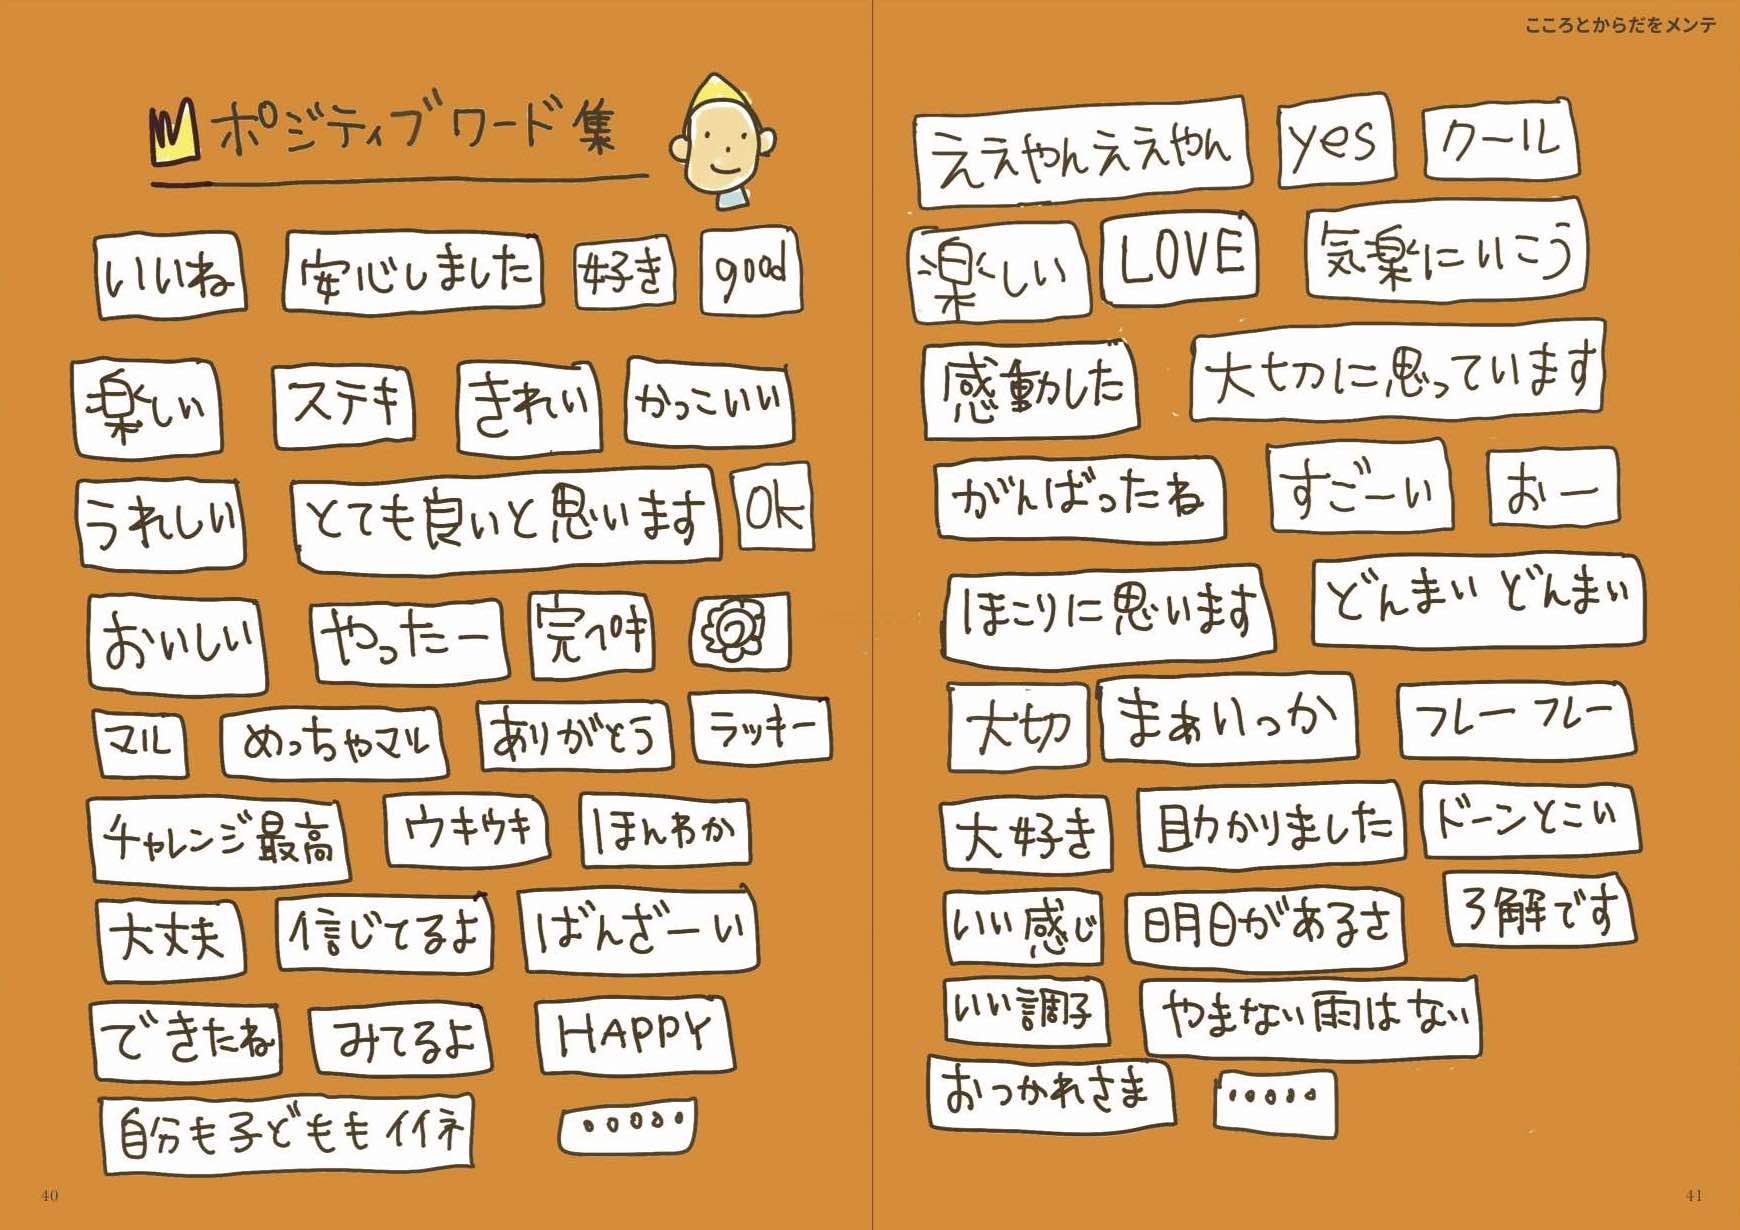 こころとからだをメンテ
ポジティブワード集
いいね 安心しました 好き good
楽しい ステキ きれい かっこいい
うれしい とても良いと思います Ok
おいしい やったー 完ペキ
マル めっちゃマル ありがとう ラッキー
チャレンジ最高 ウキウキ ほんわか
大丈夫 信じてるよ ばんざーい
できたね みてるよ HAPPY
自分も子どももイイネ ・・・・・
40
ええやんええやん yes クール
楽しい LOVE 気楽にいこう
感動した 大切に思っています
がんばったね すごーい おー
ほこりに思います どんまい どんまい
大切 まぁいっか フレー フレー
大好き 助かりました ドーンとこい
いい感じ 明日があるさ 了解です
いい調子 やまない雨はない
おつかれさま ・・・・・
41